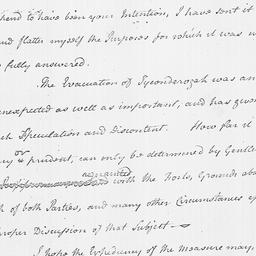 hend to have been your Intention, I have sent it
and flatter myself the Purposes for which it was w
fully answered.
The Evacuation of Ticonderogah was an
nexpected as well as important, and has given
ch Speculation and discontent. How far it
ry or prudent, can only be determined by Gentle
acquainted
with the Works, Grounds ab
h of both Parties, and many other Circumstances
proper Discussion of that Subject—
I hope the Expediency of the Measure may